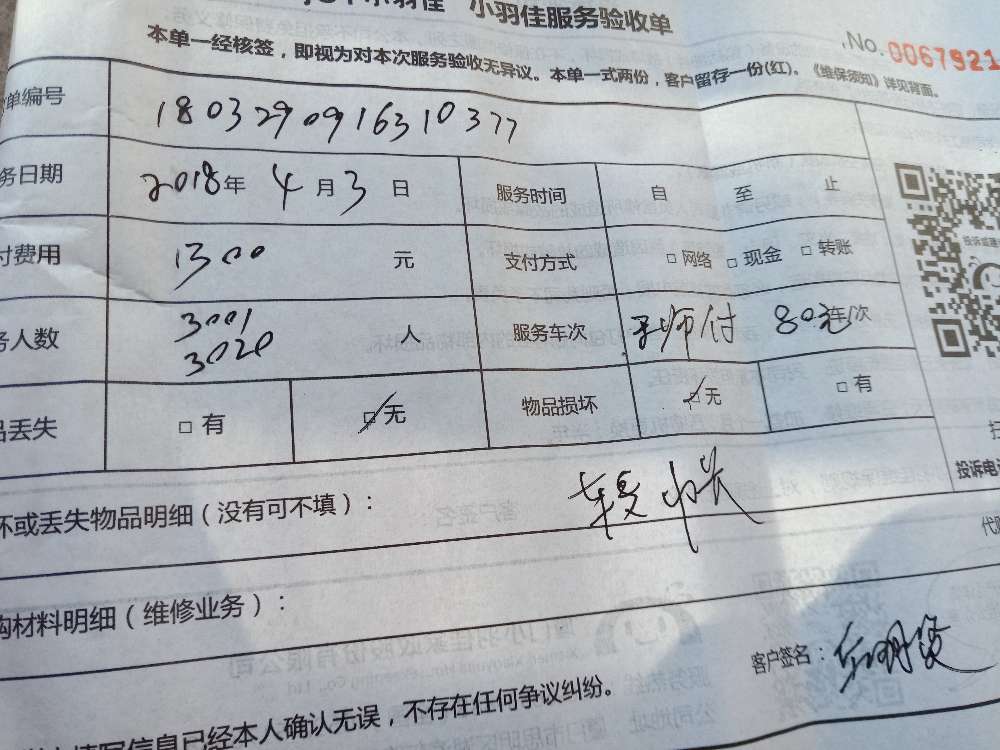 小羽佳 小羽佳服务验收单
.No. 0067921
本单一经核签，即视为对本次服务验收无异议。本单一式两份，客户留存一份(红)。《维保须知》详见背面。
单编号 1803290916310377
务日期 2018年 4月3日 服务时间 自 至 止
付费用 1300 元 支付方式 □网络 □现金 □转账
务人数 3001 人 服务车次 师付 80元 车/次
3020
品丢失 □有 □无 物品损坏 □无 □有
坏或丢失物品明细（没有可不填）：
投诉电
购材料明细（维修业务）：
客户签名：
填写信息已经本人确认无误，不存在任何争议纠纷。